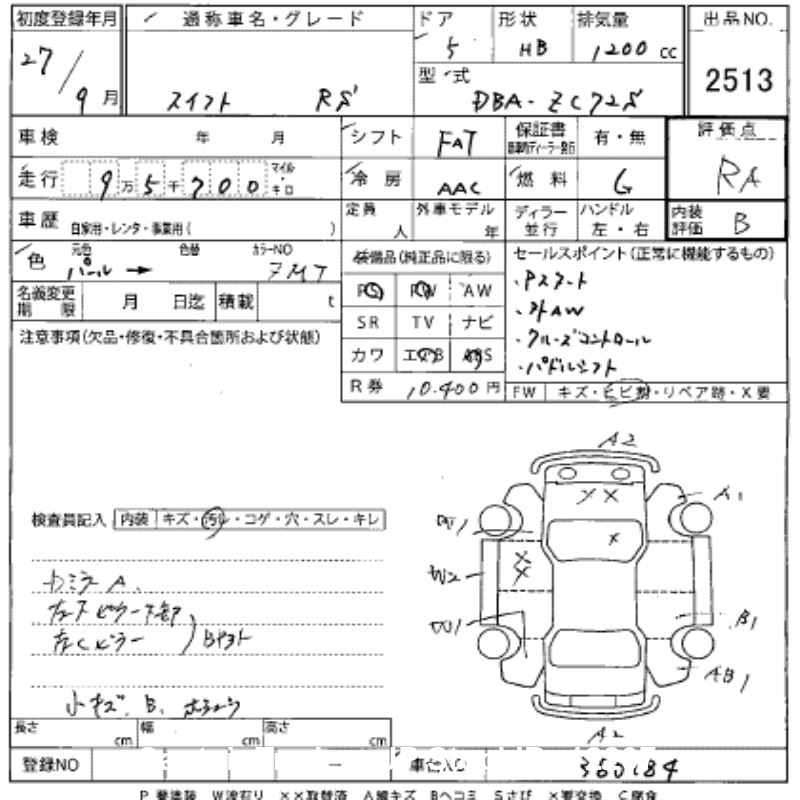 初度登録年月 通称車名・グレード ドア 形状 排気量 出品NO.
27/9月 スイフト RS 5 HB 1,200 cc 2513
型式 DBA-ZC72S
車検 年 月 シフト FAT 保証書 有・無 評価点
走行 9万5千700 マイル・キロ 冷房 AAC 燃料 G RA
車歴 自家用・レンタ・事業用( ) 定員 人 外車モデル 年 ディラー並行 ハンドル 左・右 内装評価 B
色 元色 パール → 色替 カラーNO ZMT 装備品(純正品に限る) セールスポイント(正常に機能するもの)
名義変更期限 月 日迄 積載 t PS PW AW ・Pスタート
注意事項(欠品・修復・不具合箇所および状態) SR TV ナビ ・外AW
カワ エアB ABS ・クルーズコントロール
R券 10,400円 ・パドルシフト
FW キズ・ヒビ割・リペア跡・X要
A2
検査員記入 内装 キズ・汚れ・コゲ・穴・スレ・キレ
XX A1
X
W2 XX
カミラーA
左下ピラー下部
左Cピラー
B1
AB1
小キズ、B、
A2
長さ cm 幅 cm 高さ cm
登録NO - 車台NO 360184
P要塗装 W波有り XX取替済 A線キズ Bヘコミ Sさび X要交換 C腐食